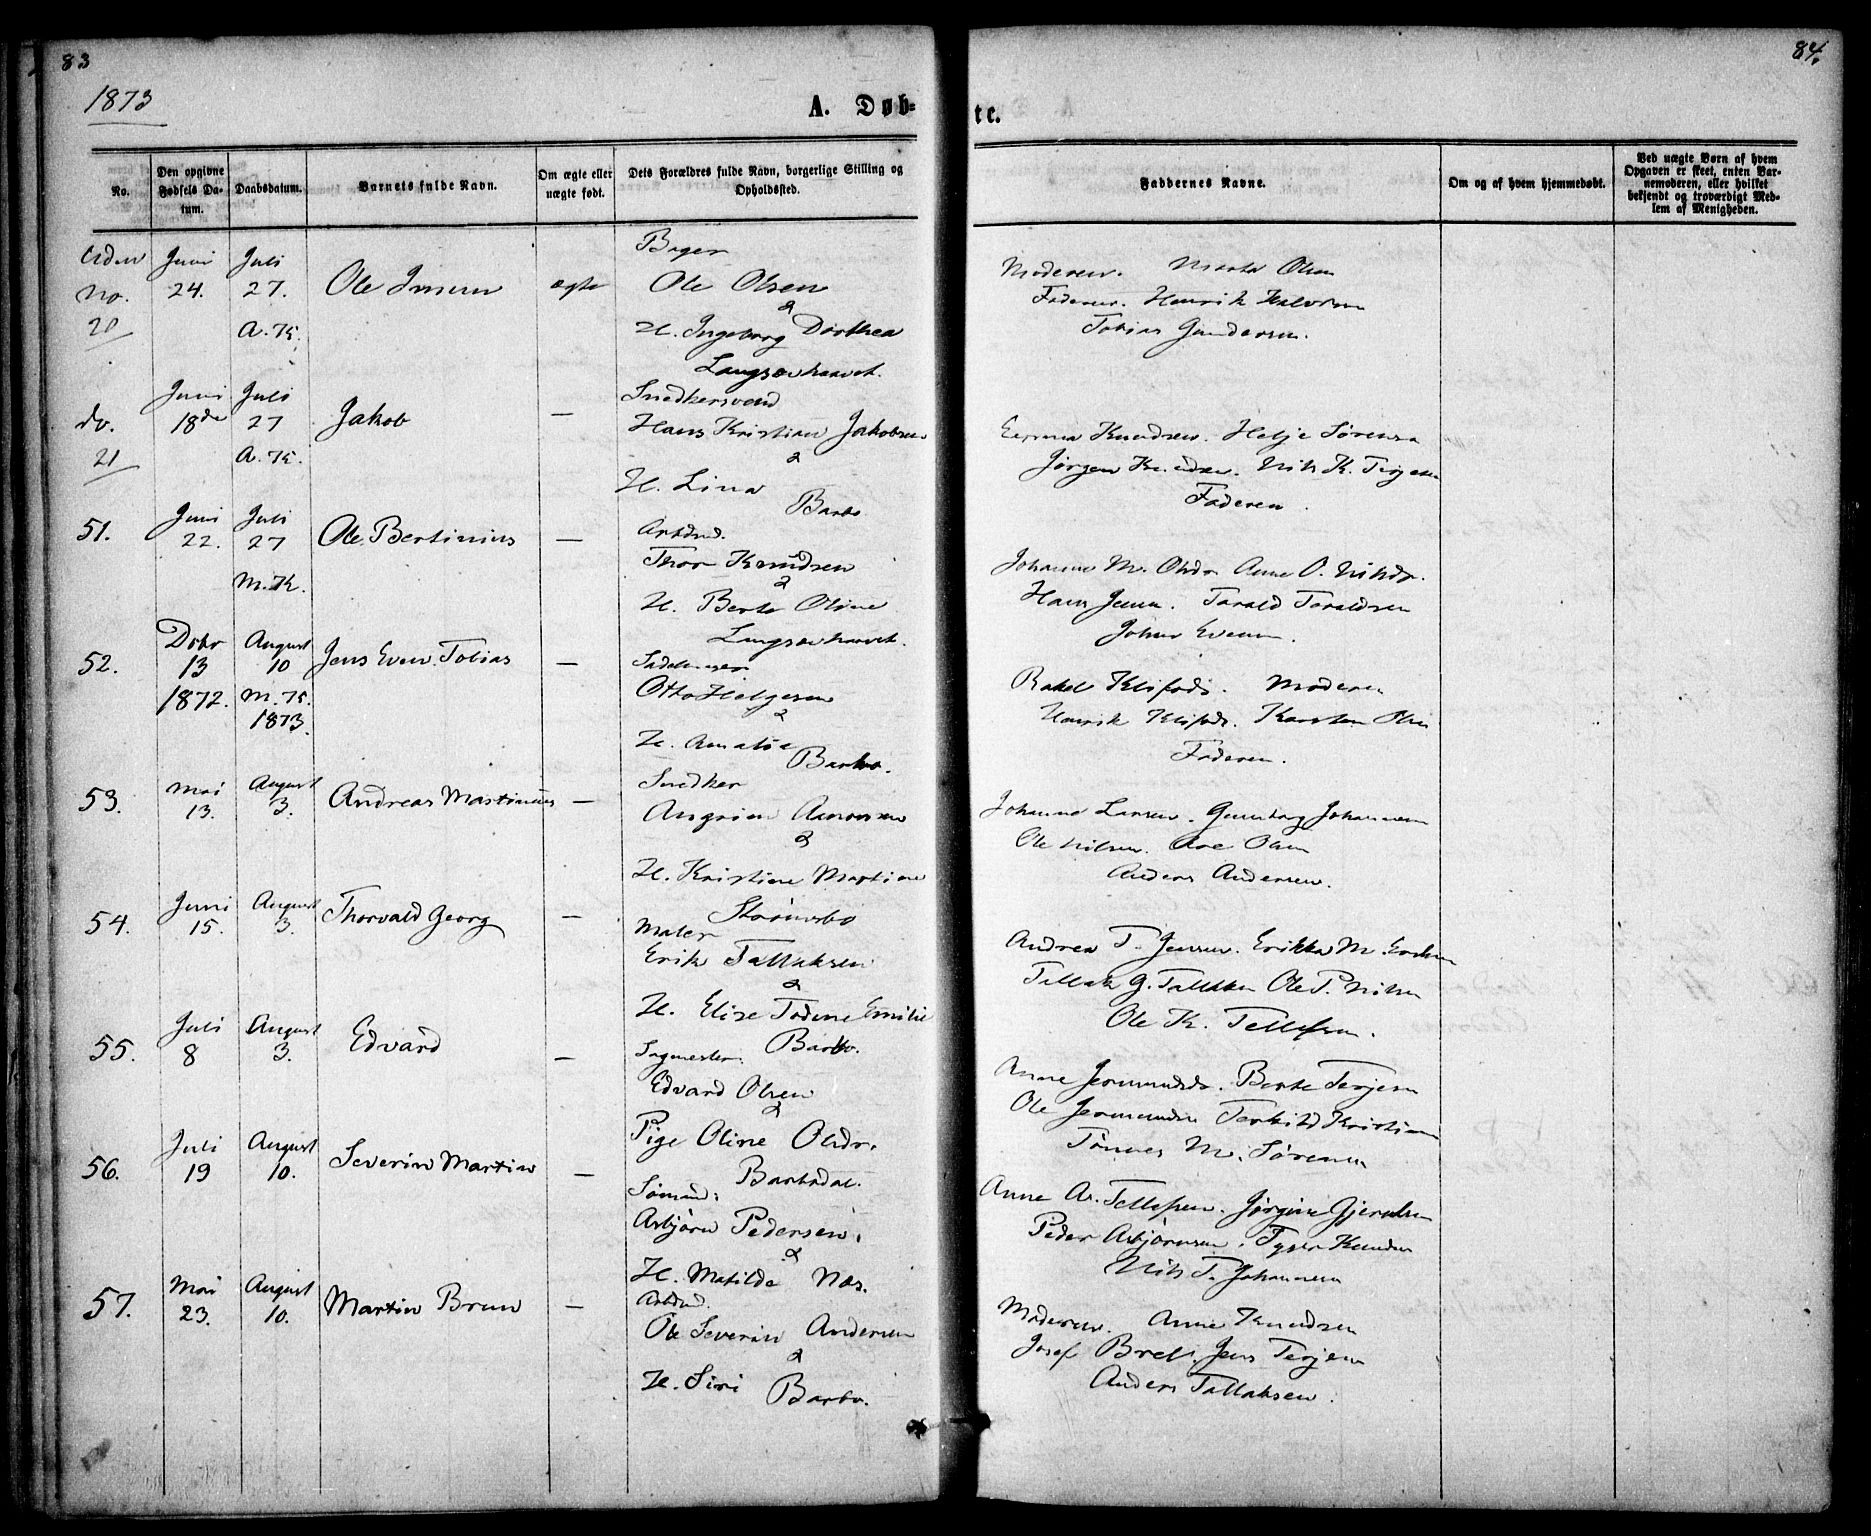 83
84.
1873
A. Døb-
te.
No.
Den opgivne Fødsels Da-tum.
Daabsdatum.
Barnets fulde Navn.
Om ægte eller uægte født.
Dets Forældres fulde Navn, borgerlige Stilling og Opholdssted.
Faddernes Navne.
Om og af hvem hjemmedøbt.
Ved uægte Børn af hvem Opgaven er skeet, enten Bar-nemoderen, eller hvilket bekjendt og troværdigt Med-lem af Menigheden.
Uden No. 20
Juni 24.
Juli 27. A.K.
Ole
ægte
Bager
Ole Olsen
&
H. Ingeborg Dorthea
Langsævhavet.
Moderen. Marta Olsen
Faderen. Henrik Halvorsen
Tobias Gundersen.
do. 21
Juni 18de
Juli 27 A.K.
Jakob
—
Snedkersvend
Hans Kristian Jakobsen
&
H. Lina
Barbo
Knudsen. Helje Sørensen
Jørgen Knudsen. Nils K. Terjesen
Faderen.
51.
Juni 22.
Juli 27 M.K.
Ole Bertinius
—
Arbdsmd.
Thor Knudsen
&
H. Berte Oline
Langsævhavet.
Johanne M. Olsdr Anne O. Nilsdr.
Hans Jensen. Tarald Taraldsen
Johns Evensen.
52.
Dcbr 13 1872.
August 10 M.K. 1873.
Jens Even Tobias
—
Sadelmager
Otto Helgesen
&
H. Amalia
Barbo.
Rakel Moderen
Henrik Karsten Olsen
Faderen.
53.
Mai 13.
August 3.
Andreas Martinius
—
Snedker
Aanonsen
&
H. Kristine Martine
Strømsbo
Johanne Larsen. Gunborg Johannesen
Ole Nilsen. Ave Olsen
Anders Andersen.
54.
Juni 15.
August 3.
Thorvald Georg
—
Maler
Erik Tallaksen
&
H. Elise Todine Emilie
Barbo.
Andrea T. Jensen. Erikka M.
Tallak G. Tallaksen Ole P. Nilsen
Ole K. Tellefsen.
55.
Juli 8
August 3.
Edvard
—
Sagmester.
Edvard Olsen
&
Pige Oline Olsdr.
Barbodal.
Anne Jermundsdr. Berte Terjesen
Ole Jermundsen Terkild Kristiansen
Tønnes M. Sørensen
56.
Juli 19
August 10.
Severin Martin
—
Sømand.
Asbjørn Pedersen.
&
H. Matilde Næs.
Anne A. Tellefsen. Jørgine Gjerulsen
Peder Asbjørnsen. Tyger Knudsen
Nils T. Johannesen
57.
Mai 23.
August 10.
Martin Brun
—
Arbdsmd.
Ole Severin Andersen
&
H. Siri Barbo.
Moderen. Anne Knudsen
Josef Jens Terjesen
Anders Tallaksen.